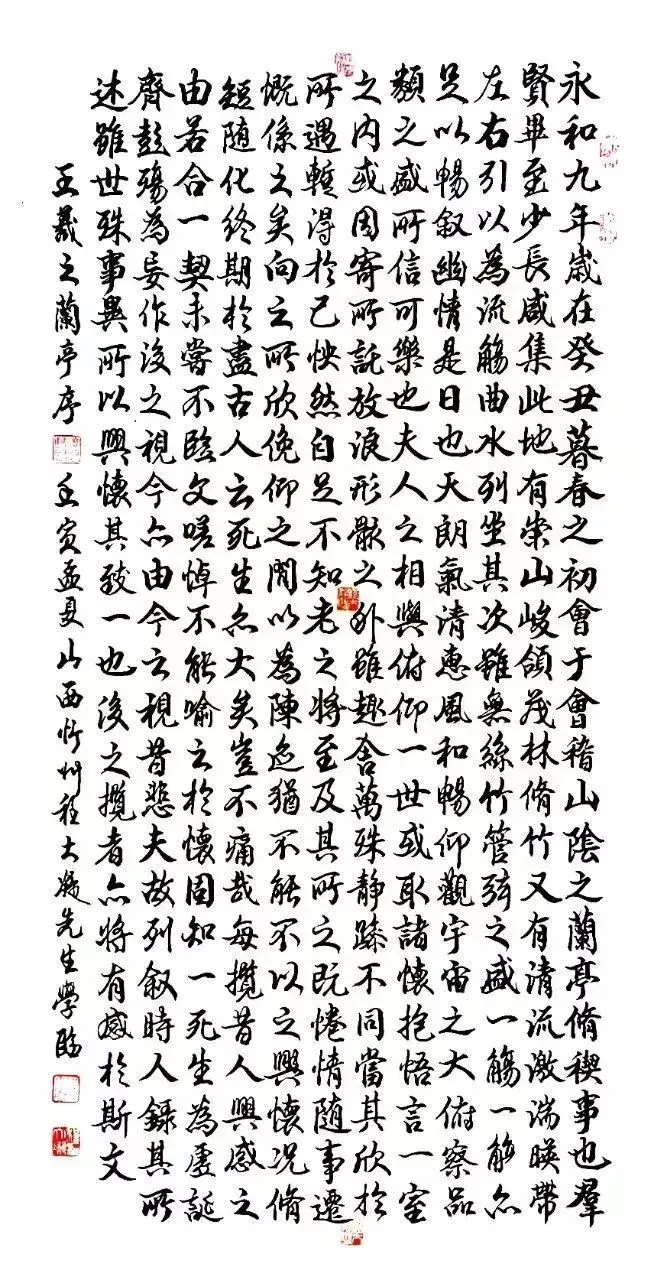 永和九年歲在癸丑暮春之初會于會稽山陰之蘭亭脩稧事也羣
賢畢至少長咸集此地有崇山峻領茂林脩竹又有清流激湍暎帶
左右引以為流觴曲水列坐其次雖無絲竹管弦之盛一觴一詠亦
足以暢叙幽情是日也天朗氣清惠風和暢仰觀宇宙之大俯察品
類之盛所信可樂也夫人之相與俯仰一世或取諸懷抱悟言一室
之内或因寄所託放浪形骸之外雖趣舍萬殊靜躁不同當其欣於
所遇暫得於己怏然自足不知老之將至及其所之既惓情隨事遷
慨係之矣向之所欣俛仰之間以為陳迹猶不能不以之興懷況脩
短隨化終期於盡古人云死生亦大矣豈不痛哉每攬昔人興感之
由若合一契未嘗不臨文嗟悼不能喻之於懷固知一死生為虛誕
齊彭殤為妄作後之視今亦由今之視昔悲夫故列叙時人錄其所
述雖世殊事異所以興懷其致一也後之攬者亦將有感於斯文
王羲之蘭亭序 壬寅孟夏山西忻州程大凝先生學臨